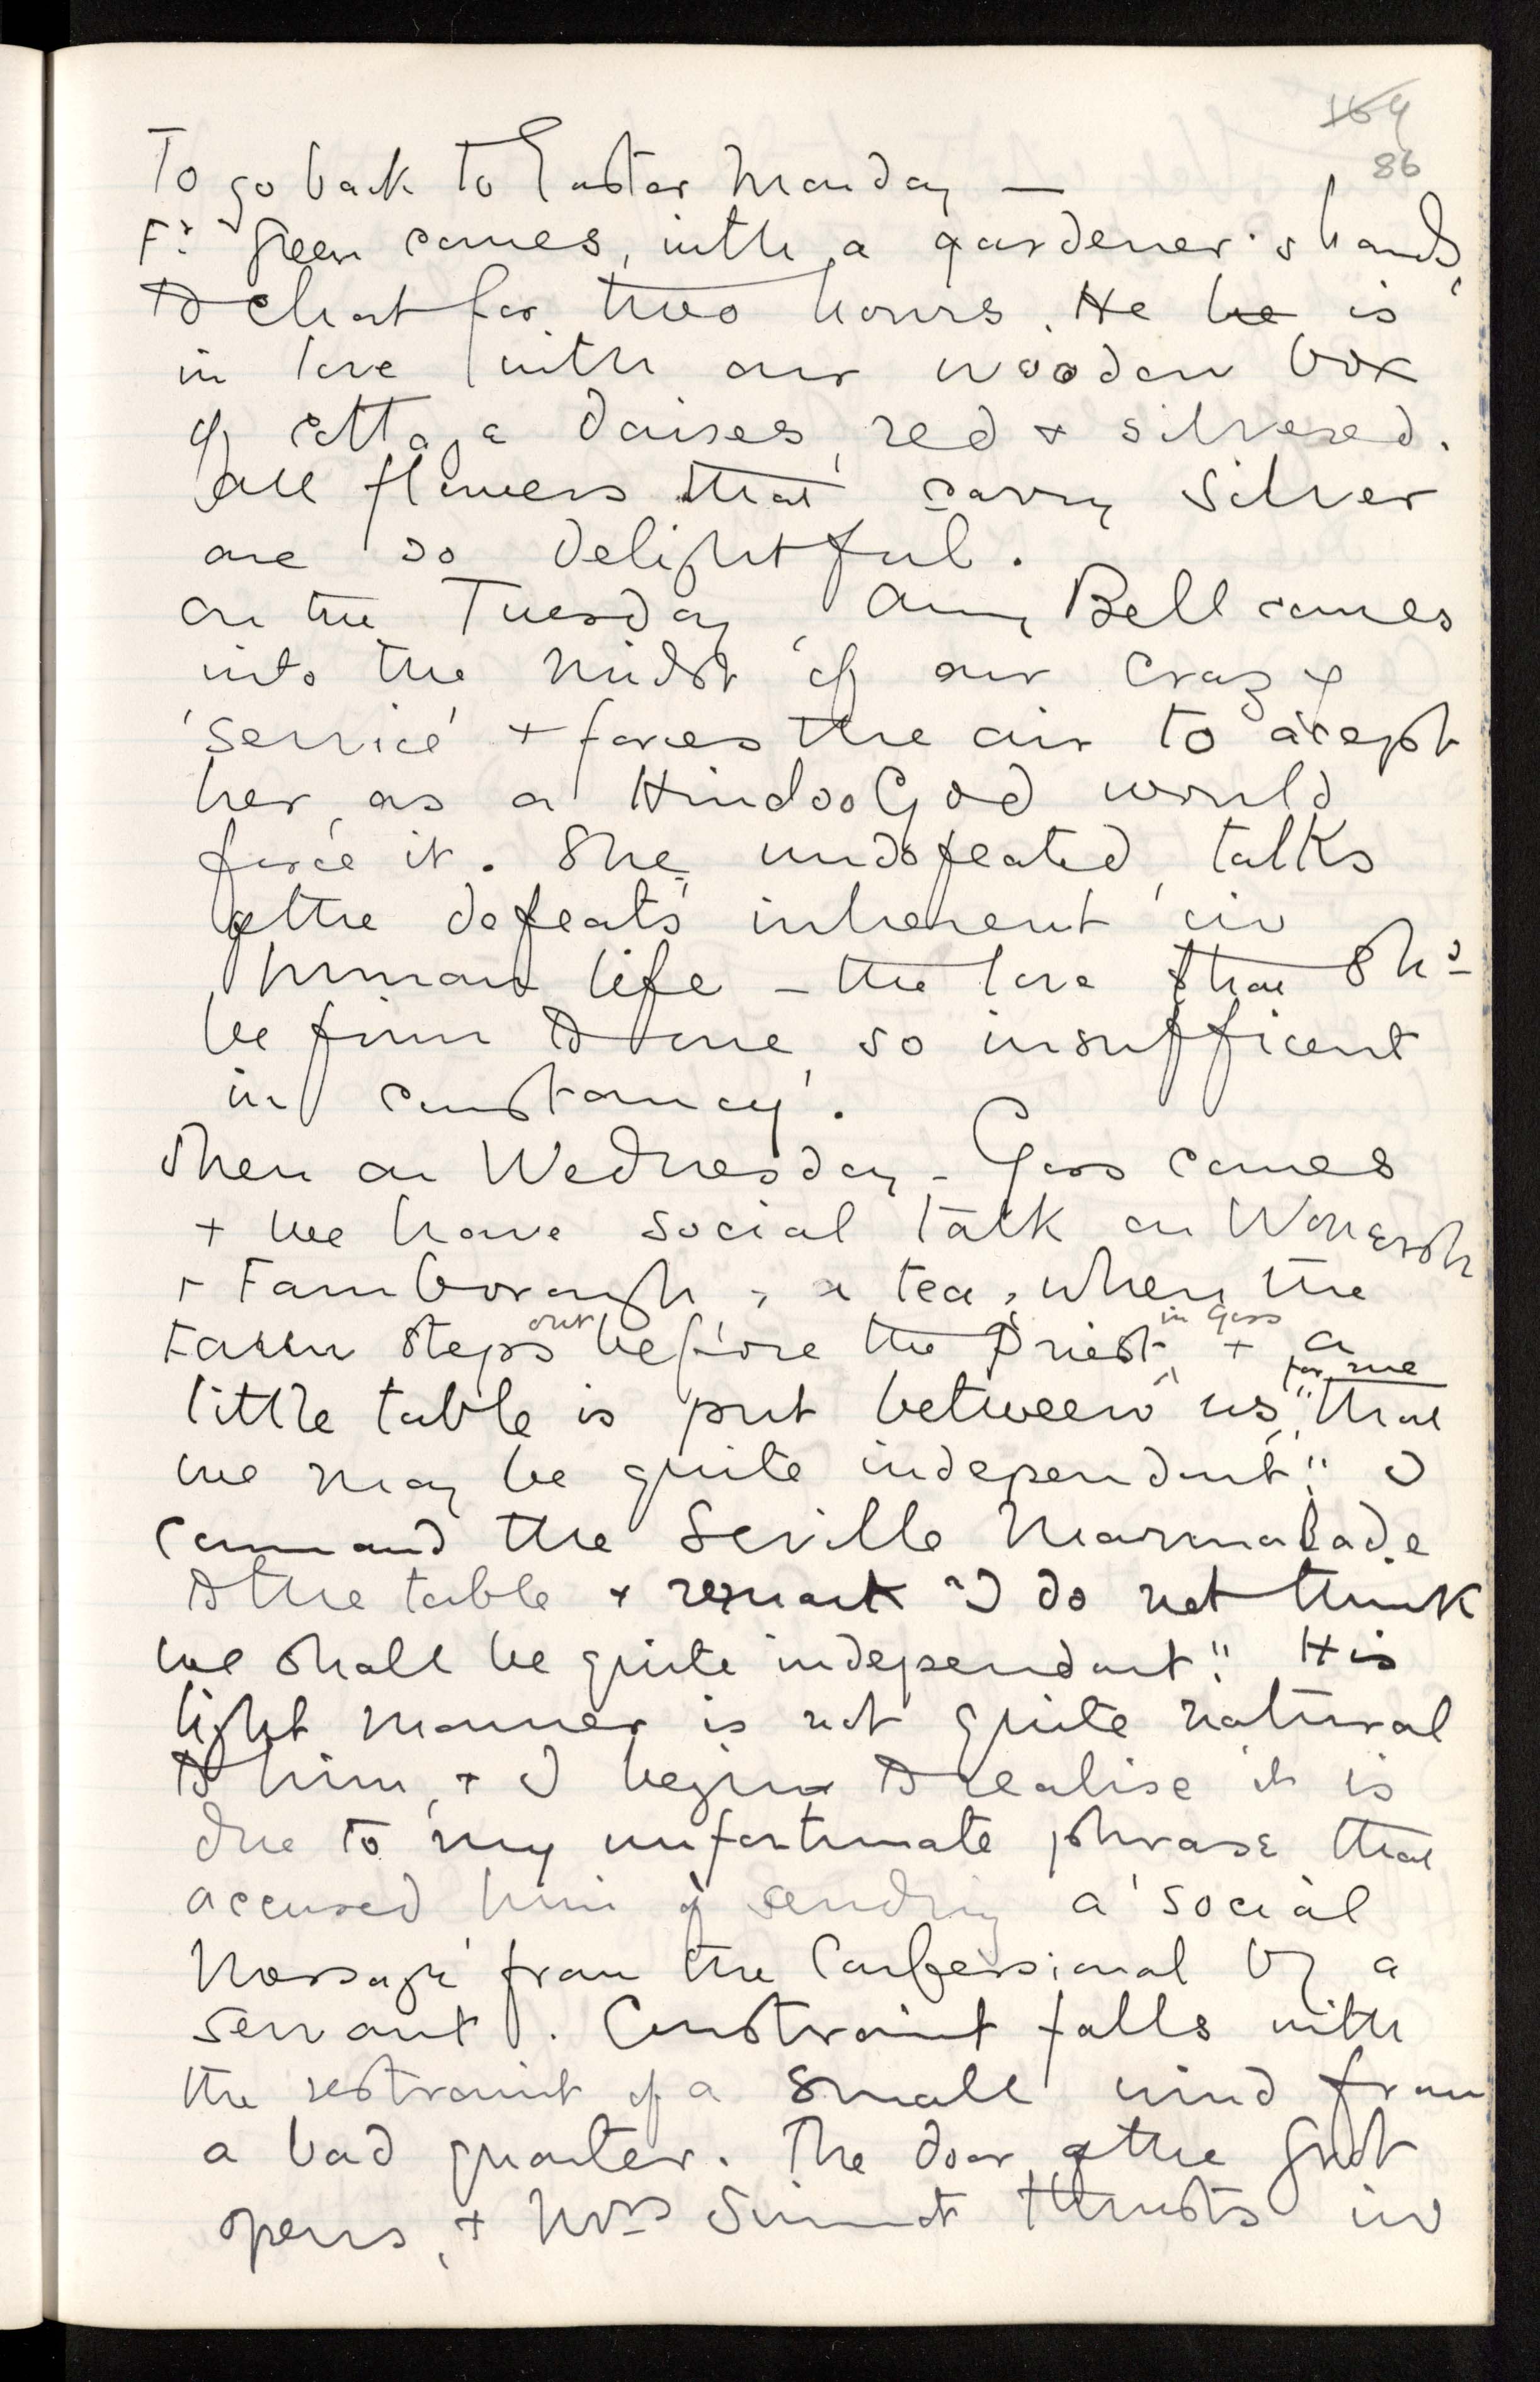 164
86
To go back to Easter Monday —
Fr. Green comes, with a gardener's hands,
to chat for two hours. He he is
in love with our wooden box
of cottage daises, red + silvered.
All flowers that carry silver
are so delightful.
On the Tuesday, Amy Bell comes
into the midst of our crazy
'service' + forces the air to accept
her, as a Hindoo God would
force it. She, undefeated, talks
of the defeats inherent in
human life — the love that shd
be firm to one, so insufficent
in constancy.
Then on Wednesday - Goss comes
+ we have social talk on Wonersh
+ Farnborough, a tea, when the
Faun steps out before the Priest in Goss + a
little table is put between us, for me "that
we may be quite independent". I
command the Seville Marmalade
to the table + remark "I do not think
we shall be quite independant". His
light manner is not quite natural
to him, + I begin to realise it is
due to my unfortunate phrase that
accused him of sending a 'social
message' from the Confessional by a
servant. Constraint falls with
the restraint of a small wind from
a bad quarter. The door of the Grot
opens, + Mrs thrusts in